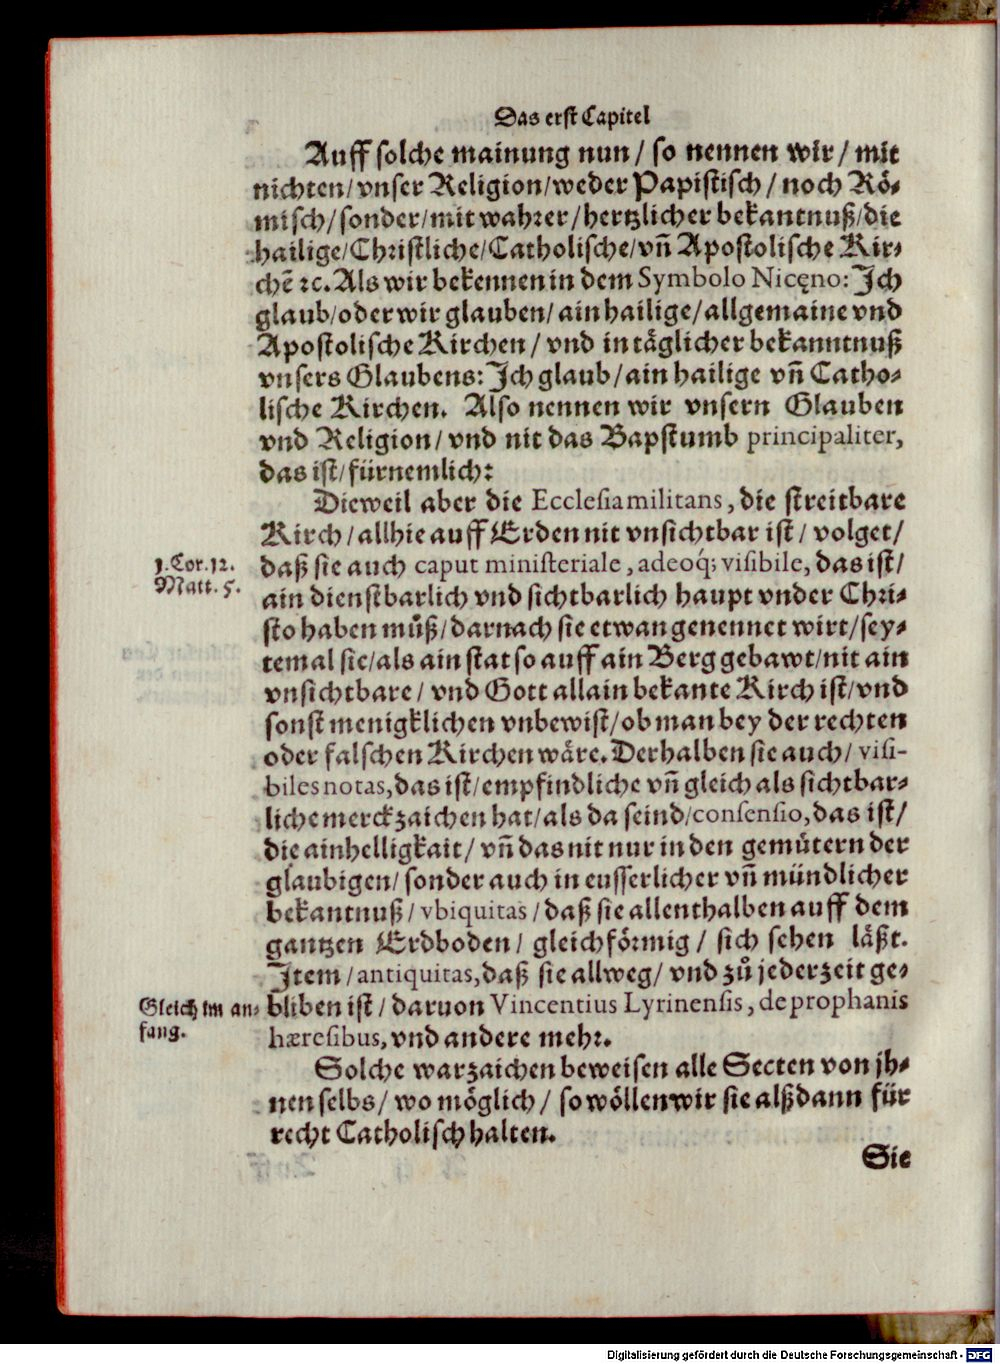 Das erst Capitel
Auff solche mainung nun / so nennen wir / mit
nichten / vnser Religion / weder Papistisch / noch Rö-
misch / sonder / mit wahrer / hertzlicher bekantnuß / die
hailige / Christliche / Catholische / vn̄ Apostolische Kir-
chē ꝛc. Als wir bekennen in dem Symbolo Nicęno: Ich
glaub / oder wir glauben / ain hailige / allgemaine vnd
Apostolische Kirchen / vnd in täglicher bekanntnuß
vnsers Glaubens: Ich glaub / ain hailige vn̄ Catho-
lische Kirchen. Also nennen wir vnsern Glauben
vnd Religion / vnd nit das Bapstumb principaliter,
das ist / fürnemlich:
Dieweil aber die Ecclesia militans, die streitbare
Kirch / allhie auff Erden nit vnsichtbar ist / volget /
1. Cor. 12.
Matt. 5.
daß sie auch caput ministeriale, adeoq́; visibile, das ist /
ain dienstbarlich vnd sichtbarlich haupt vnder Chri-
sto haben můß / darnach sie etwan genennet wirt / sey-
temal sie / als ain stat so auff ain Berg gebawt / nit ain
vnsichtbare / vnd Gott allain bekante Kirch ist / vnd
sonst menigklichen vnbewist / ob man bey der rechten
oder falschen Kirchen wäre. Derhalben sie auch / visi-
biles notas, das ist / empfindliche vn̄ gleich als sichtbar-
liche merckzaichen hat / als da seind / consensio, das ist /
die ainhelligkait / vn̄ das nit nur in den gemütern der
glaubigen / sonder auch in eusserlicher vn̄ mündlicher
bekantnuß / vbiquitas / daß sie allenthalben auff dem
gantzen Erdboden / gleichförmig / sich sehen läßt.
Item / antiquitas, daß sie allweg / vnd zů jederzeit ge-
Gleich im an-
fang.
bliben ist / daruon Vincentius Lyrinensis, de prophanis
hæresibus, vnd andere mehr.
Solche warzaichen beweisen alle Secten von jh-
nen selbs / wo möglich / so wöllen wir sie alßdann für
recht Catholisch halten.
Sie
Digitalisierung gefördert durch die Deutsche Forschungsgemeinschaft - DFG